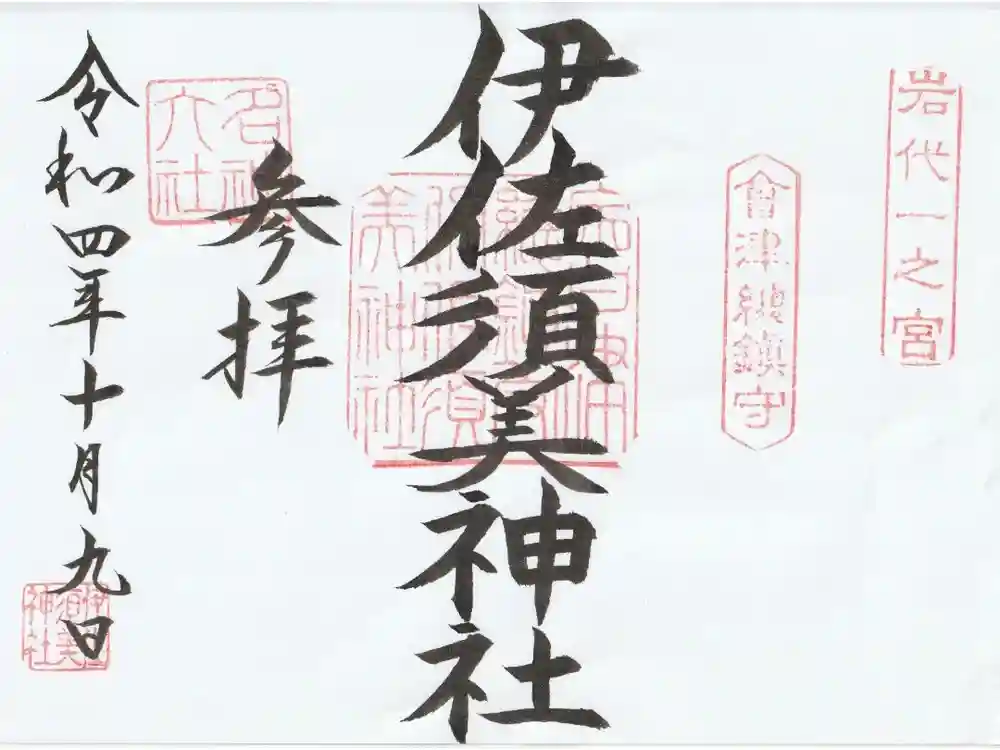 岩代一之宮
會津總鎮守
伊佐須美神社
参拝
名神
大社
令和四年十月九日
伊佐
須美
神社